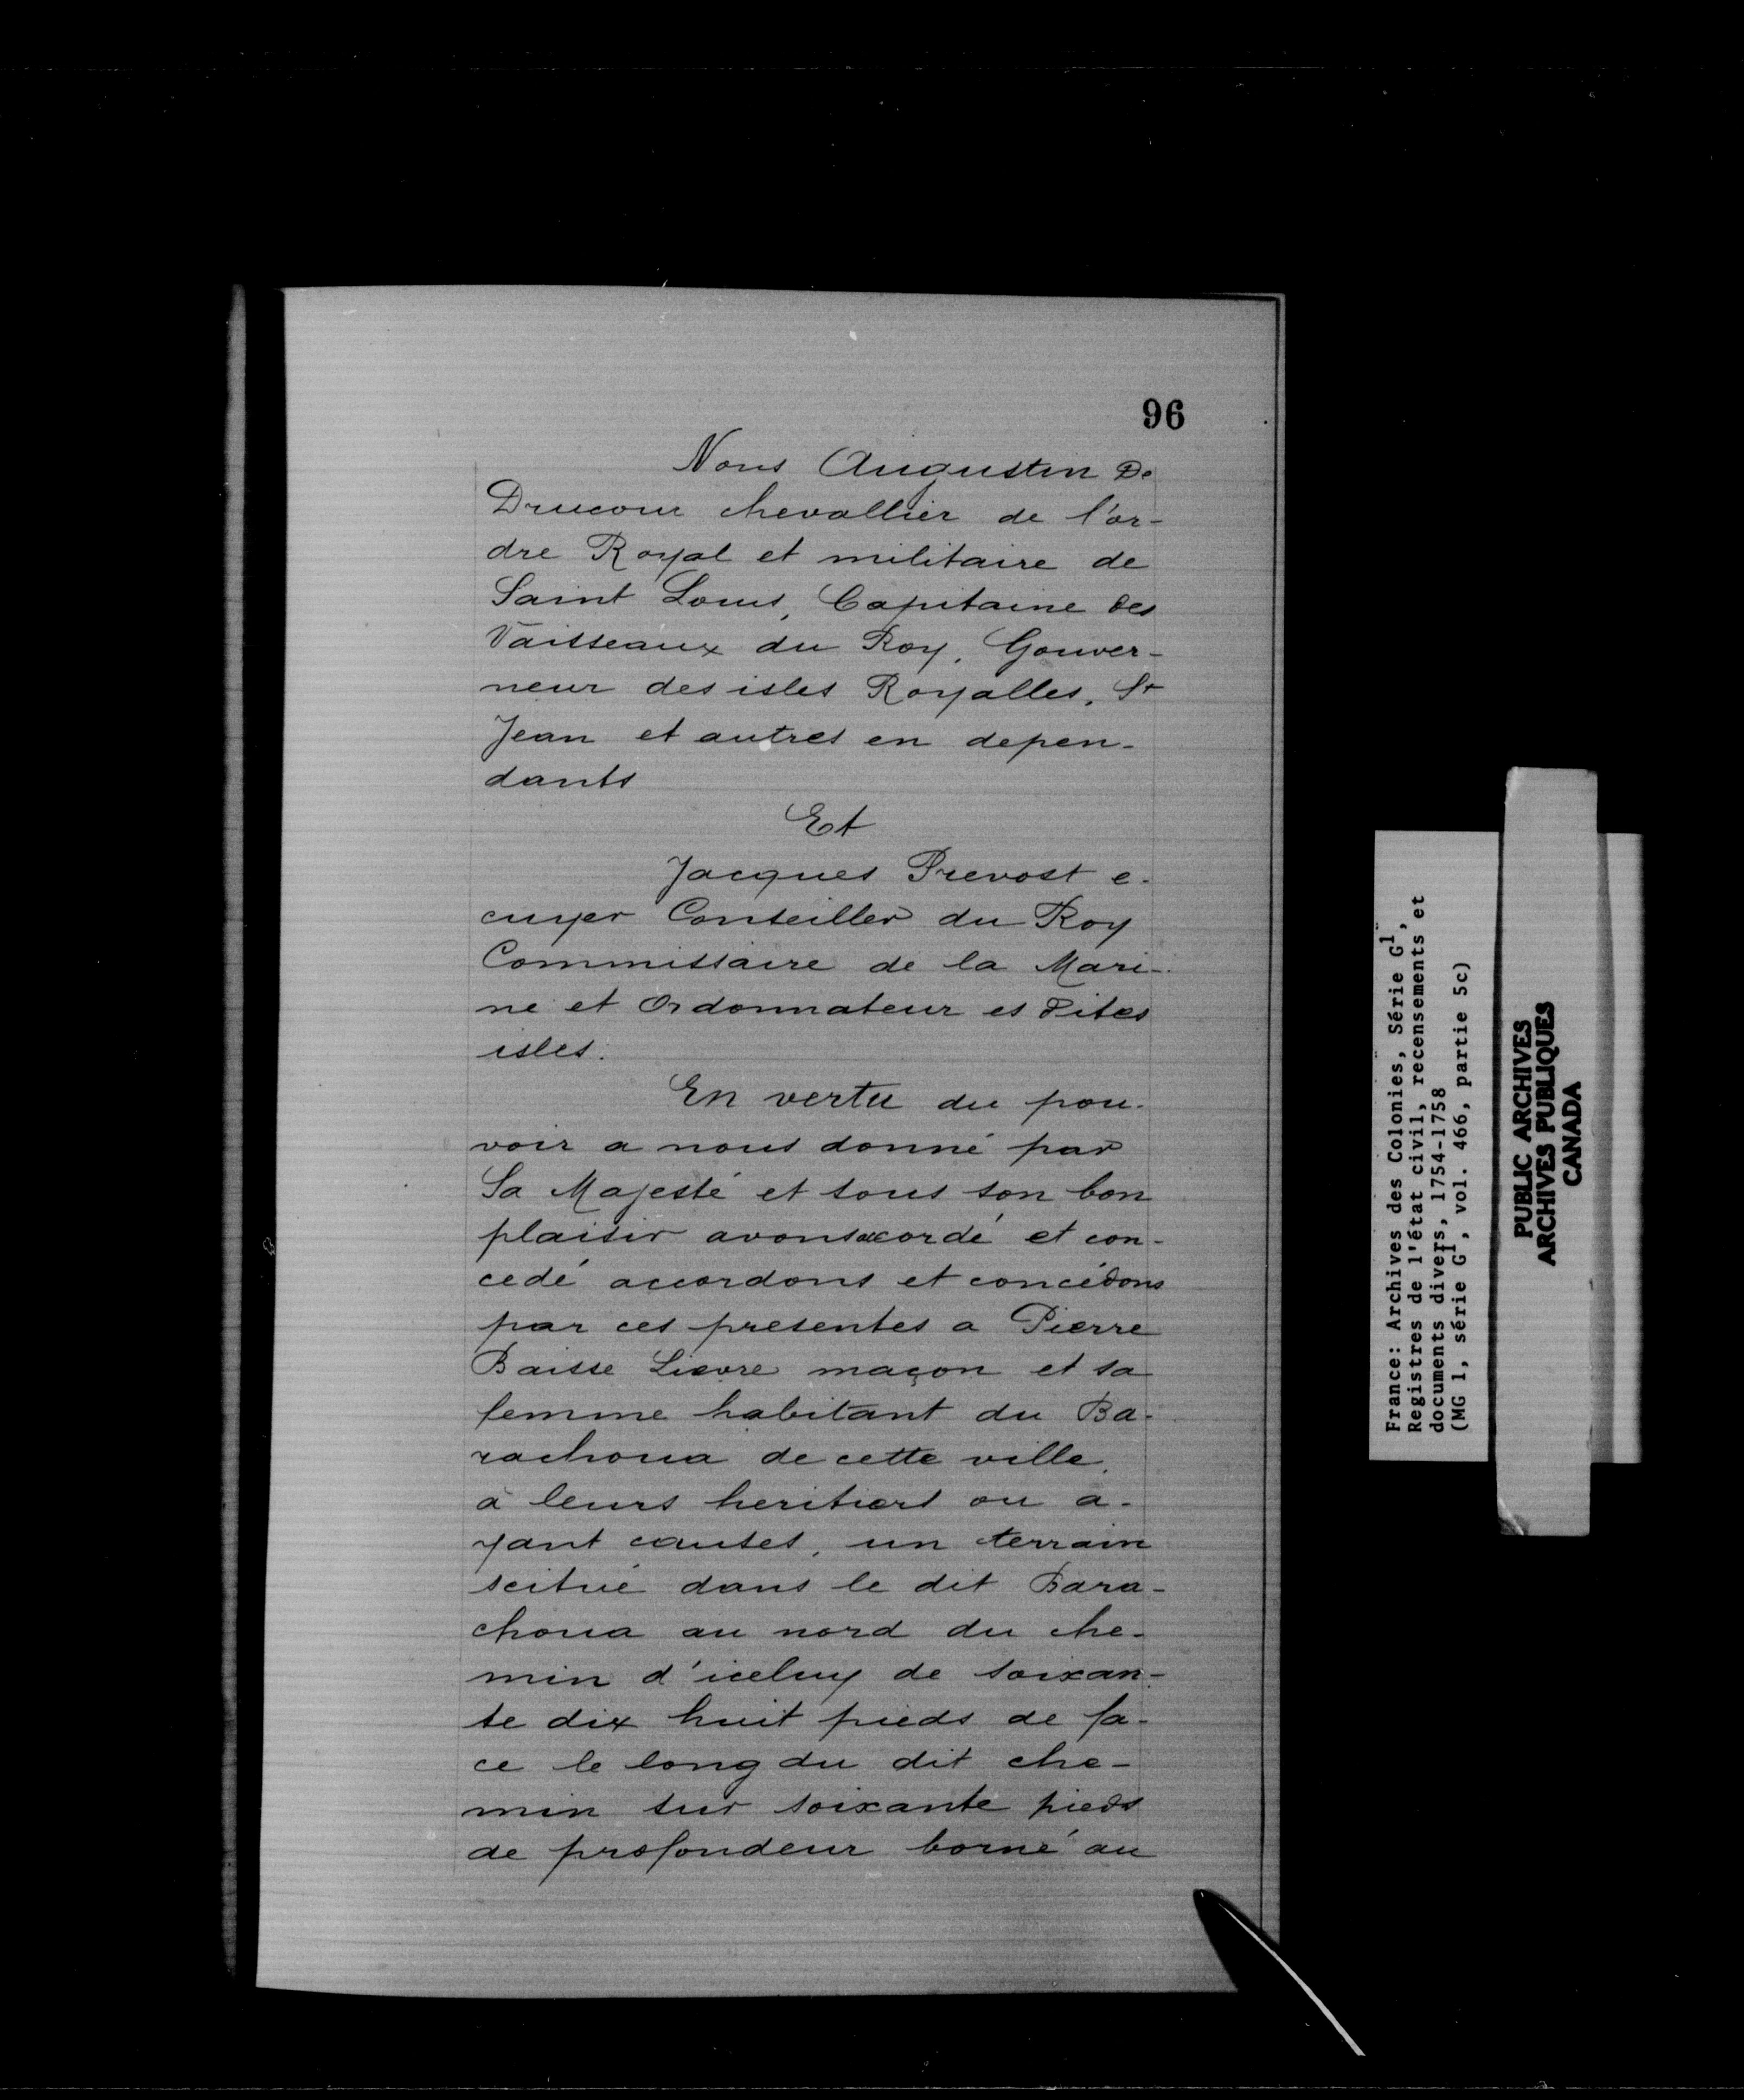 96
Nous Augustin De
Drucour chevallier de l'or-
dre Royal et militaire de
Saint Louis, Capitaine des
Vaisseaux du Roy, Gouver-
neur des isles Royalles, St
Jean et autres en depen-
dants
Et
Jacques Prevost e-
cuyer Conseiller du Roy
Commissaire de la Mari-
ne et Ordonnateur es dites
isles.
En vertu du pou-
voir a nous donné par
Sa Majesté et sous son bon
plaisir avons accordé et con-
cedé accordons et concédons
par ces presentes a Pierre
Baisse Lievre maçon et sa
femme habitant du Ba-
rachoua de cette ville,
à leurs heritiers ou a-
yant causes, un terrain
scitué dans le dit Bara-
choua au nord du che-
min d'iceluy de soixan-
te dix huit pieds de fa-
ce le long du dit che-
min sur soixante pieds
de profondeur borné au
France: Archives des Colonies, Série G1,
Registres de l'état civil, recensements et
documents divers, 1754-1758
(MG 1, série G1, vol. 466, partie 5c)
PUBLIC ARCHIVES
ARCHIVES PUBLIQUES
CANADA